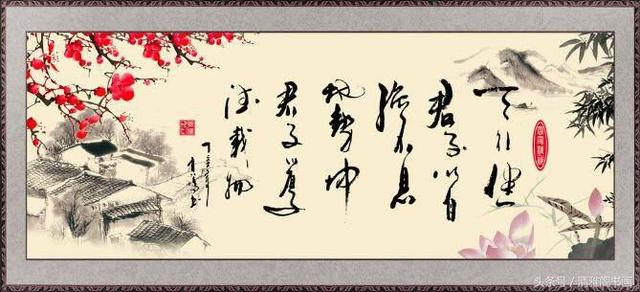 天行健
君子以自
强不息
地勢坤
君子以厚
德載物
头条号 / 雅阁书画